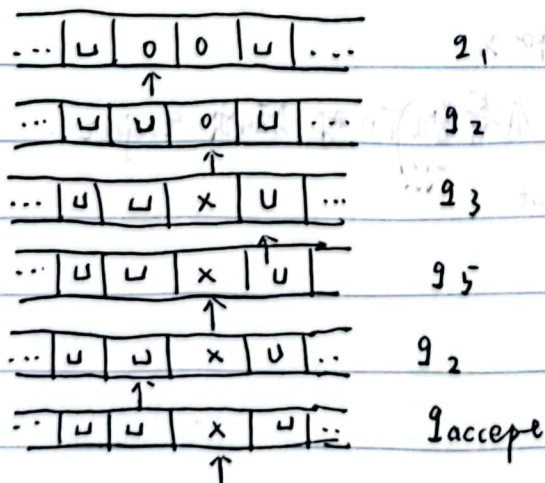 ... ⊔ 0 0 ⊔ ... q₁
... ⊔ ⊔ 0 ⊔ ... q₂
... ⊔ ⊔ x ⊔ ... q₃
... ⊔ ⊔ x ⊔ q₅
... ⊔ ⊔ x ⊔ .. q₂
... ⊔ ⊔ x ⊔ .. qaccept